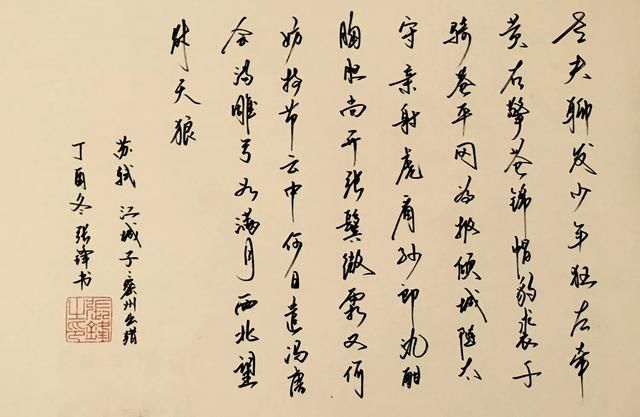 老夫聊发少年狂左牵
黄右擎苍锦帽貂裘千
骑卷平冈为报倾城随太
守亲射虎看孙郎酒酣
胸胆尚开张鬓微霜又何
妨持节云中何日遣冯唐
会挽雕弓如满月西北望
射天狼
苏轼 江城子·密州出猎
丁酉冬张锋书
張鋒之印